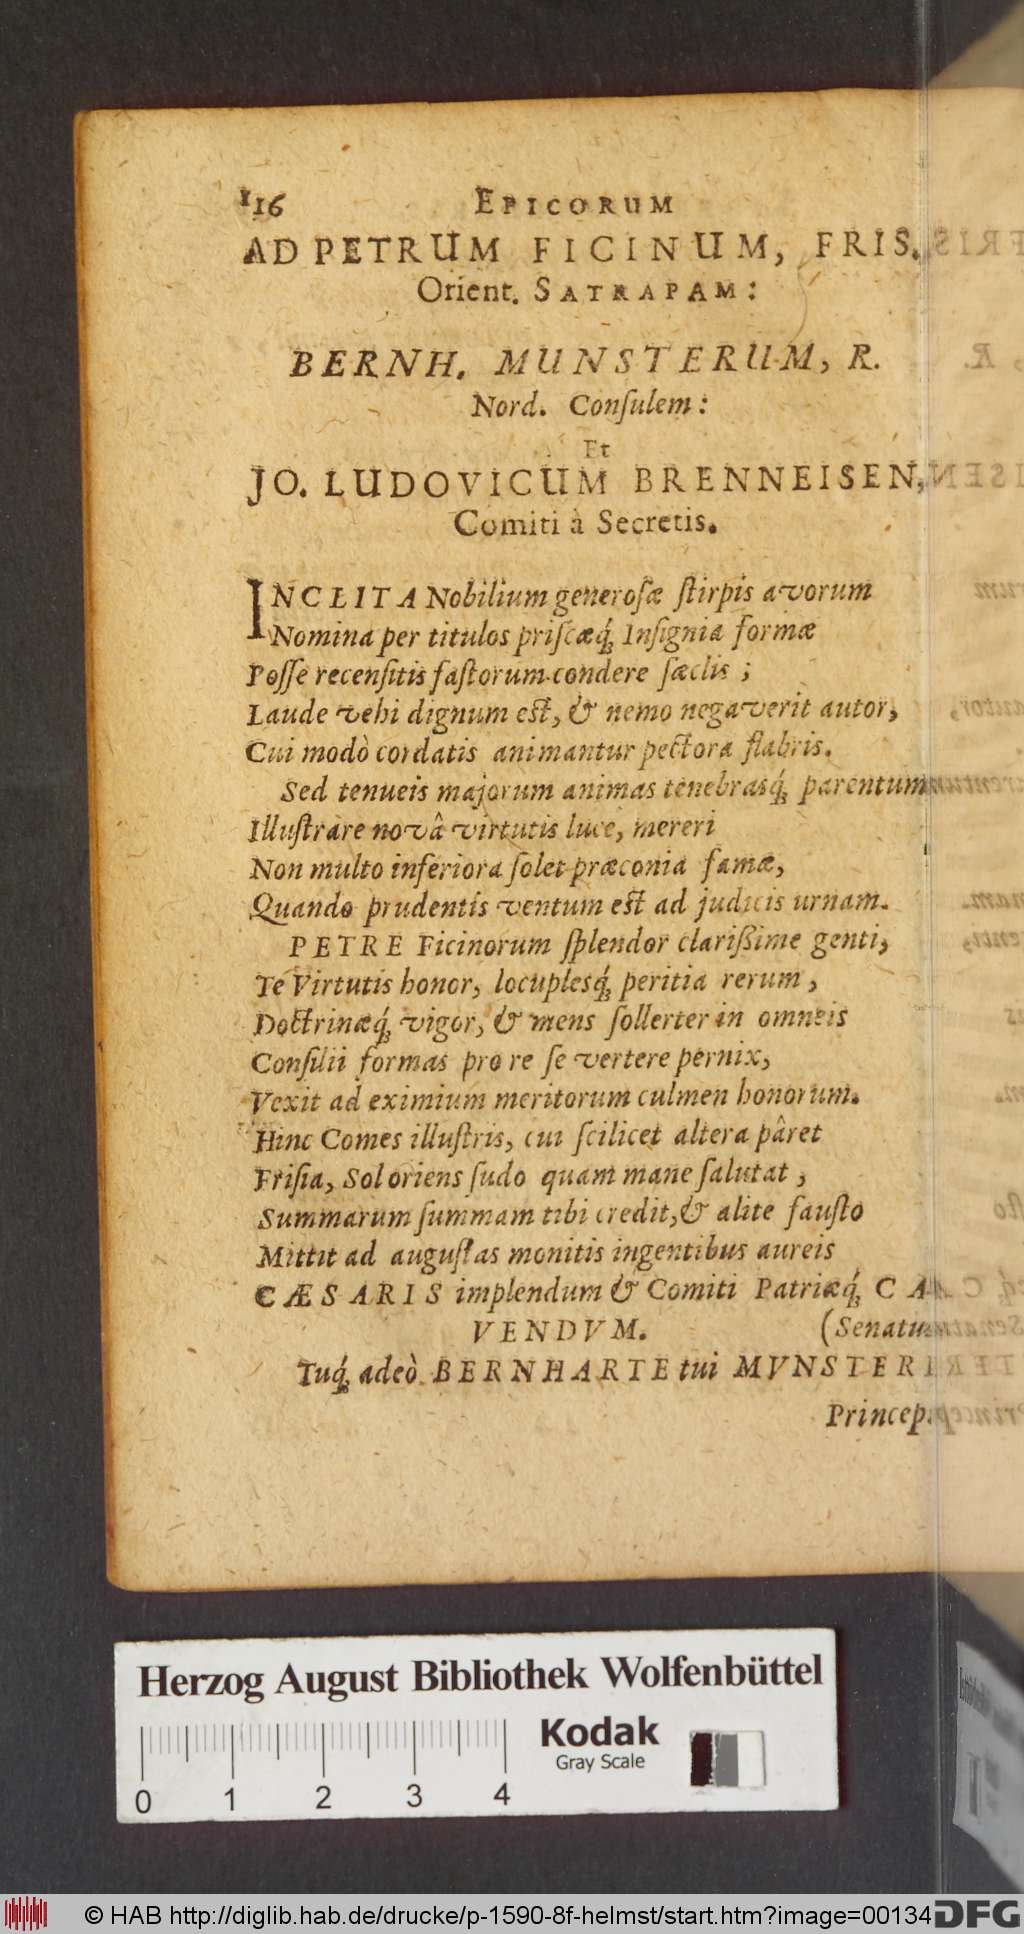 116 EPICORUM
AD PETRUM FICINUM, FRIS.
Orient. SATRAPAM:
BERNH. MUNSTERUM, R.
Nord. Conſulem:
Et
JO. LUDOVICUM BRENNEISEN,
Comiti à Secretis.
INCLITA Nobilium generoſæ ſtirpis avorum
Nomina per titulos priſcæq́; Inſignia formæ
Poſſe recenſitis faſtorum condere ſæclis;
Laude vehi dignum eſt, & nemo negaverit autor,
Cui modò cordatis animantur pectora flabris.
Sed tenueis majorum animas tenebrasq́; parentum
Illuſtrare novâ virtutis luce, mereri
Non multo inferiora ſolet præconia famæ,
Quando prudentis ventum eſt ad judicis urnam.
PETRE Ficinorum ſplendor clarißime genti,
Te Virtutis honor, locuplesq́; peritia rerum,
Doctrinæq́; vigor, & mens ſollerter in omneis
Conſilii formas pro re ſe vertere pernix,
Vexit ad eximium meritorum culmen honorum.
Hinc Comes illuſtris, cui ſcilicet altera pâret
Friſia, Sol oriens ſudo quam mane ſalutat,
Summarum ſummam tibi credit, & alite fauſto
Mittit ad auguſtas monitis ingentibus aureis
CÆSARIS implendum & Comiti Patriæq́; CA-
VENDVM. (Senatum
Tuq́; adeò BERNHARTE tui MVNSTERE
Princep.
Herzog August Bibliothek Wolfenbüttel
Kodak
Gray Scale
0 1 2 3 4
© HAB http://diglib.hab.de/drucke/p-1590-8f-helmst/start.htm?image=00134
DFG